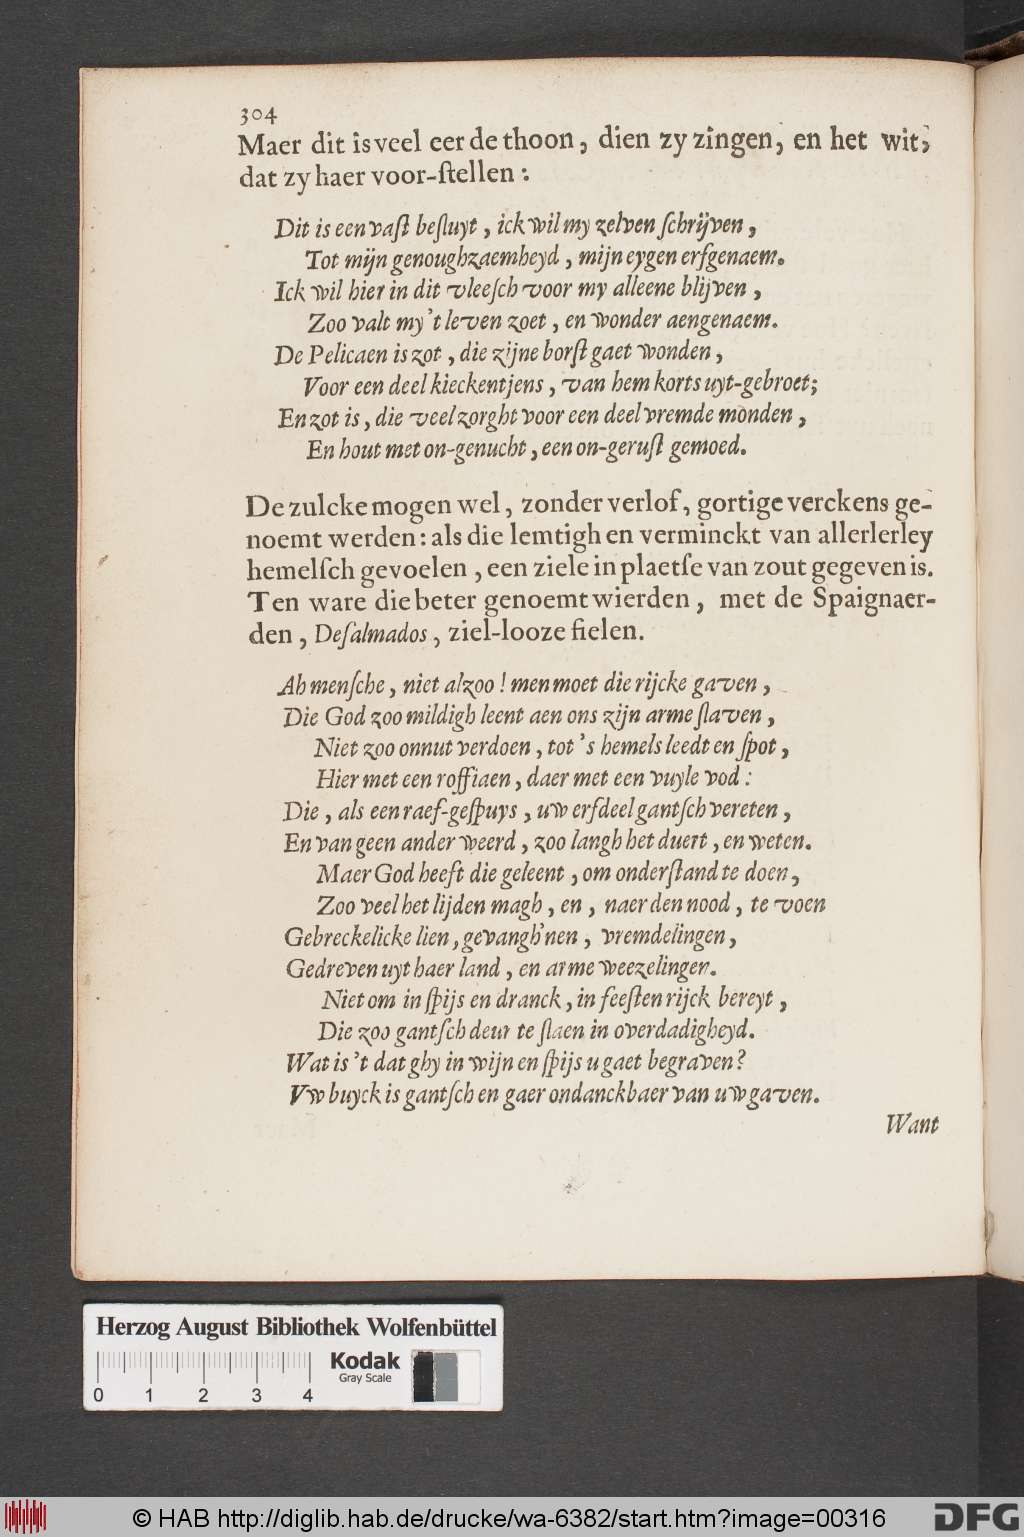 304
Maer dit is veel eer de thoon, dien zy zingen, en het wit,
dat zy haer voor-ſtellen:
Dit is een vaſt beſluyt, ick wil my zelven ſchrijven,
Tot mijn genoughzaemheyd, mijn eygen erfgenaem.
Ick wil hier in dit vleeſch voor my alleene blijven,
Zoo valt my 't leven zoet, en wonder aengenaem.
De Pelicaen is zot, die zijne borſt gaet wonden,
Voor een deel kieckentjens, van hem korts uyt-gebroet;
En zot is, die veel zorght voor een deel vremde monden,
En hout met on-genucht, een on-geruſt gemoed.
De zulcke mogen wel, zonder verlof, gortige verckens ge-
noemt werden: als die lemtigh en verminckt van allerlerley
hemelſch gevoelen, een ziele in plaetſe van zout gegeven is.
Ten ware die beter genoemt wierden, met de Spaignaer-
den, Deſalmados, ziel-looze fielen.
Ah menſche, niet alzoo! men moet die rijcke gaven,
Die God zoo mildigh leent aen ons zijn arme ſlaven,
Niet zoo onnut verdoen, tot 's hemels leedt en ſpot,
Hier met een roffiaen, daer met een vuyle vod:
Die, als een raef-geſpuys, uw erfdeel gantſch vereten,
En van geen ander weerd, zoo langh het duert, en weten.
Maer God heeft die geleent, om onderſtand te doen,
Zoo veel het lijden magh, en, naer den nood, te voen
Gebreckelicke lien, gevangh'nen, vremdelingen,
Gedreven uyt haer land, en arme weezelingen.
Niet om in ſpijs en dranck, in feeſten rijck bereyt,
Die zoo gantſch deur te ſlaen in overdadigheyd.
Wat is 't dat ghy in wijn en ſpijs u gaet begraven?
Vw buyck is gantſch en gaer ondanckbaer van uw gaven.
Want
Herzog August Bibliothek Wolfenbüttel
Kodak
Gray Scale
0 1 2 3 4
© HAB http://diglib.hab.de/drucke/wa-6382/start.htm?image=00316
DFG